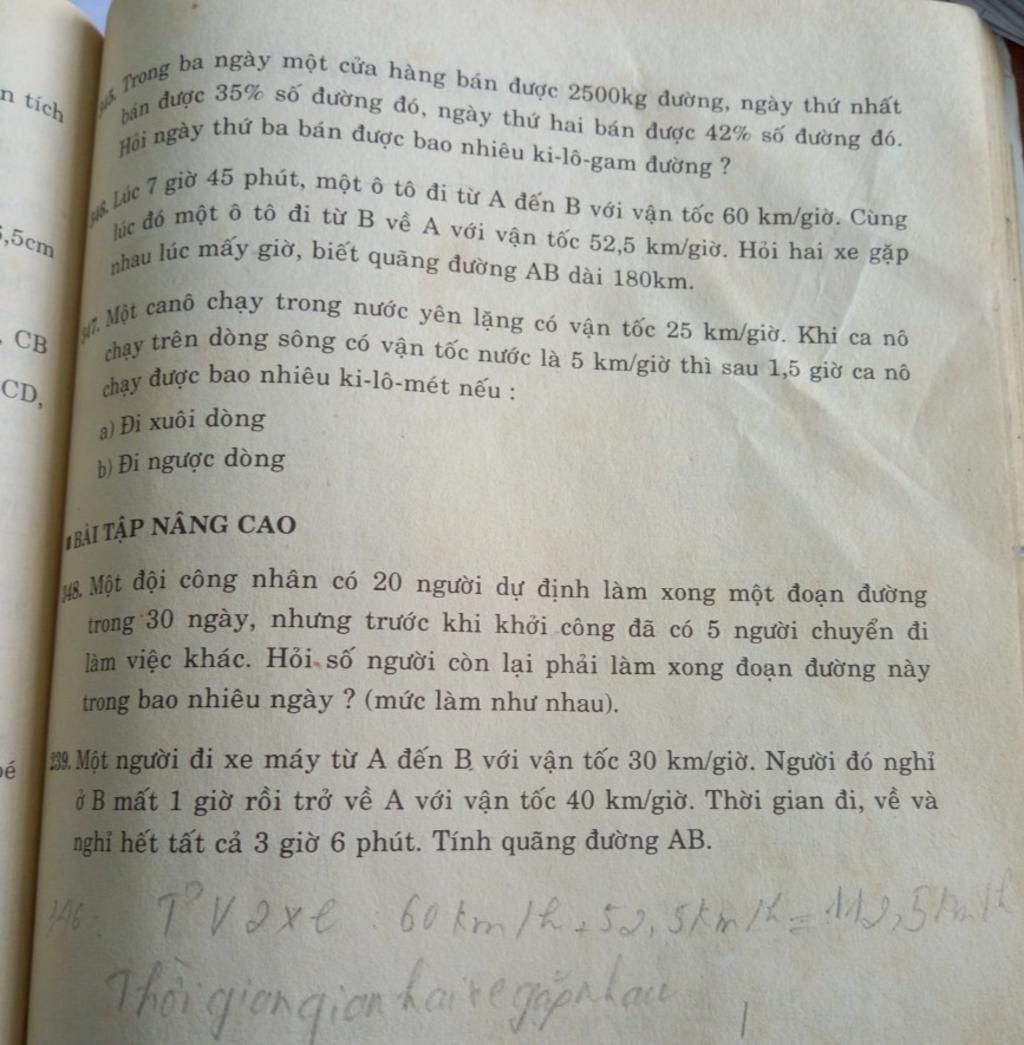 n tích
5,5cm
, CB
CD,
bé
345. Trong ba ngày một cửa hàng bán được 2500kg đường, ngày thứ nhất
bán được 35% số đường đó, ngày thứ hai bán được 42% số đường đó.
Hỏi ngày thứ ba bán được bao nhiêu ki-lô-gam đường ?
346. Lúc 7 giờ 45 phút, một ô tô đi từ A đến B với vận tốc 60 km/giờ. Cùng
lúc đó một ô tô đi từ B về A với vận tốc 52,5 km/giờ. Hỏi hai xe gặp
nhau lúc mấy giờ, biết quãng đường AB dài 180km.
347. Một canô chạy trong nước yên lặng có vận tốc 25 km/giờ. Khi ca nô
chạy trên dòng sông có vận tốc nước là 5 km/giờ thì sau 1,5 giờ ca nô
chạy được bao nhiêu ki-lô-mét nếu :
a) Đi xuôi dòng
b) Đi ngược dòng
BÀI TẬP NÂNG CAO
348. Một đội công nhân có 20 người dự định làm xong một đoạn đường
trong 30 ngày, nhưng trước khi khởi công đã có 5 người chuyển đi
làm việc khác. Hỏi số người còn lại phải làm xong đoạn đường này
trong bao nhiêu ngày ? (mức làm như nhau).
239. Một người đi xe máy từ A đến B với vận tốc 30 km/giờ. Người đó nghỉ
ở B mất 1 giờ rồi trở về A với vận tốc 40 km/giờ. Thời gian đi, về và
nghỉ hết tất cả 3 giờ 6 phút. Tính quãng đường AB.
346: T V 2 xe : 60 km/h + 52,5km/h = 112,5km/h
Thời gian gian hai xe gặp nhau